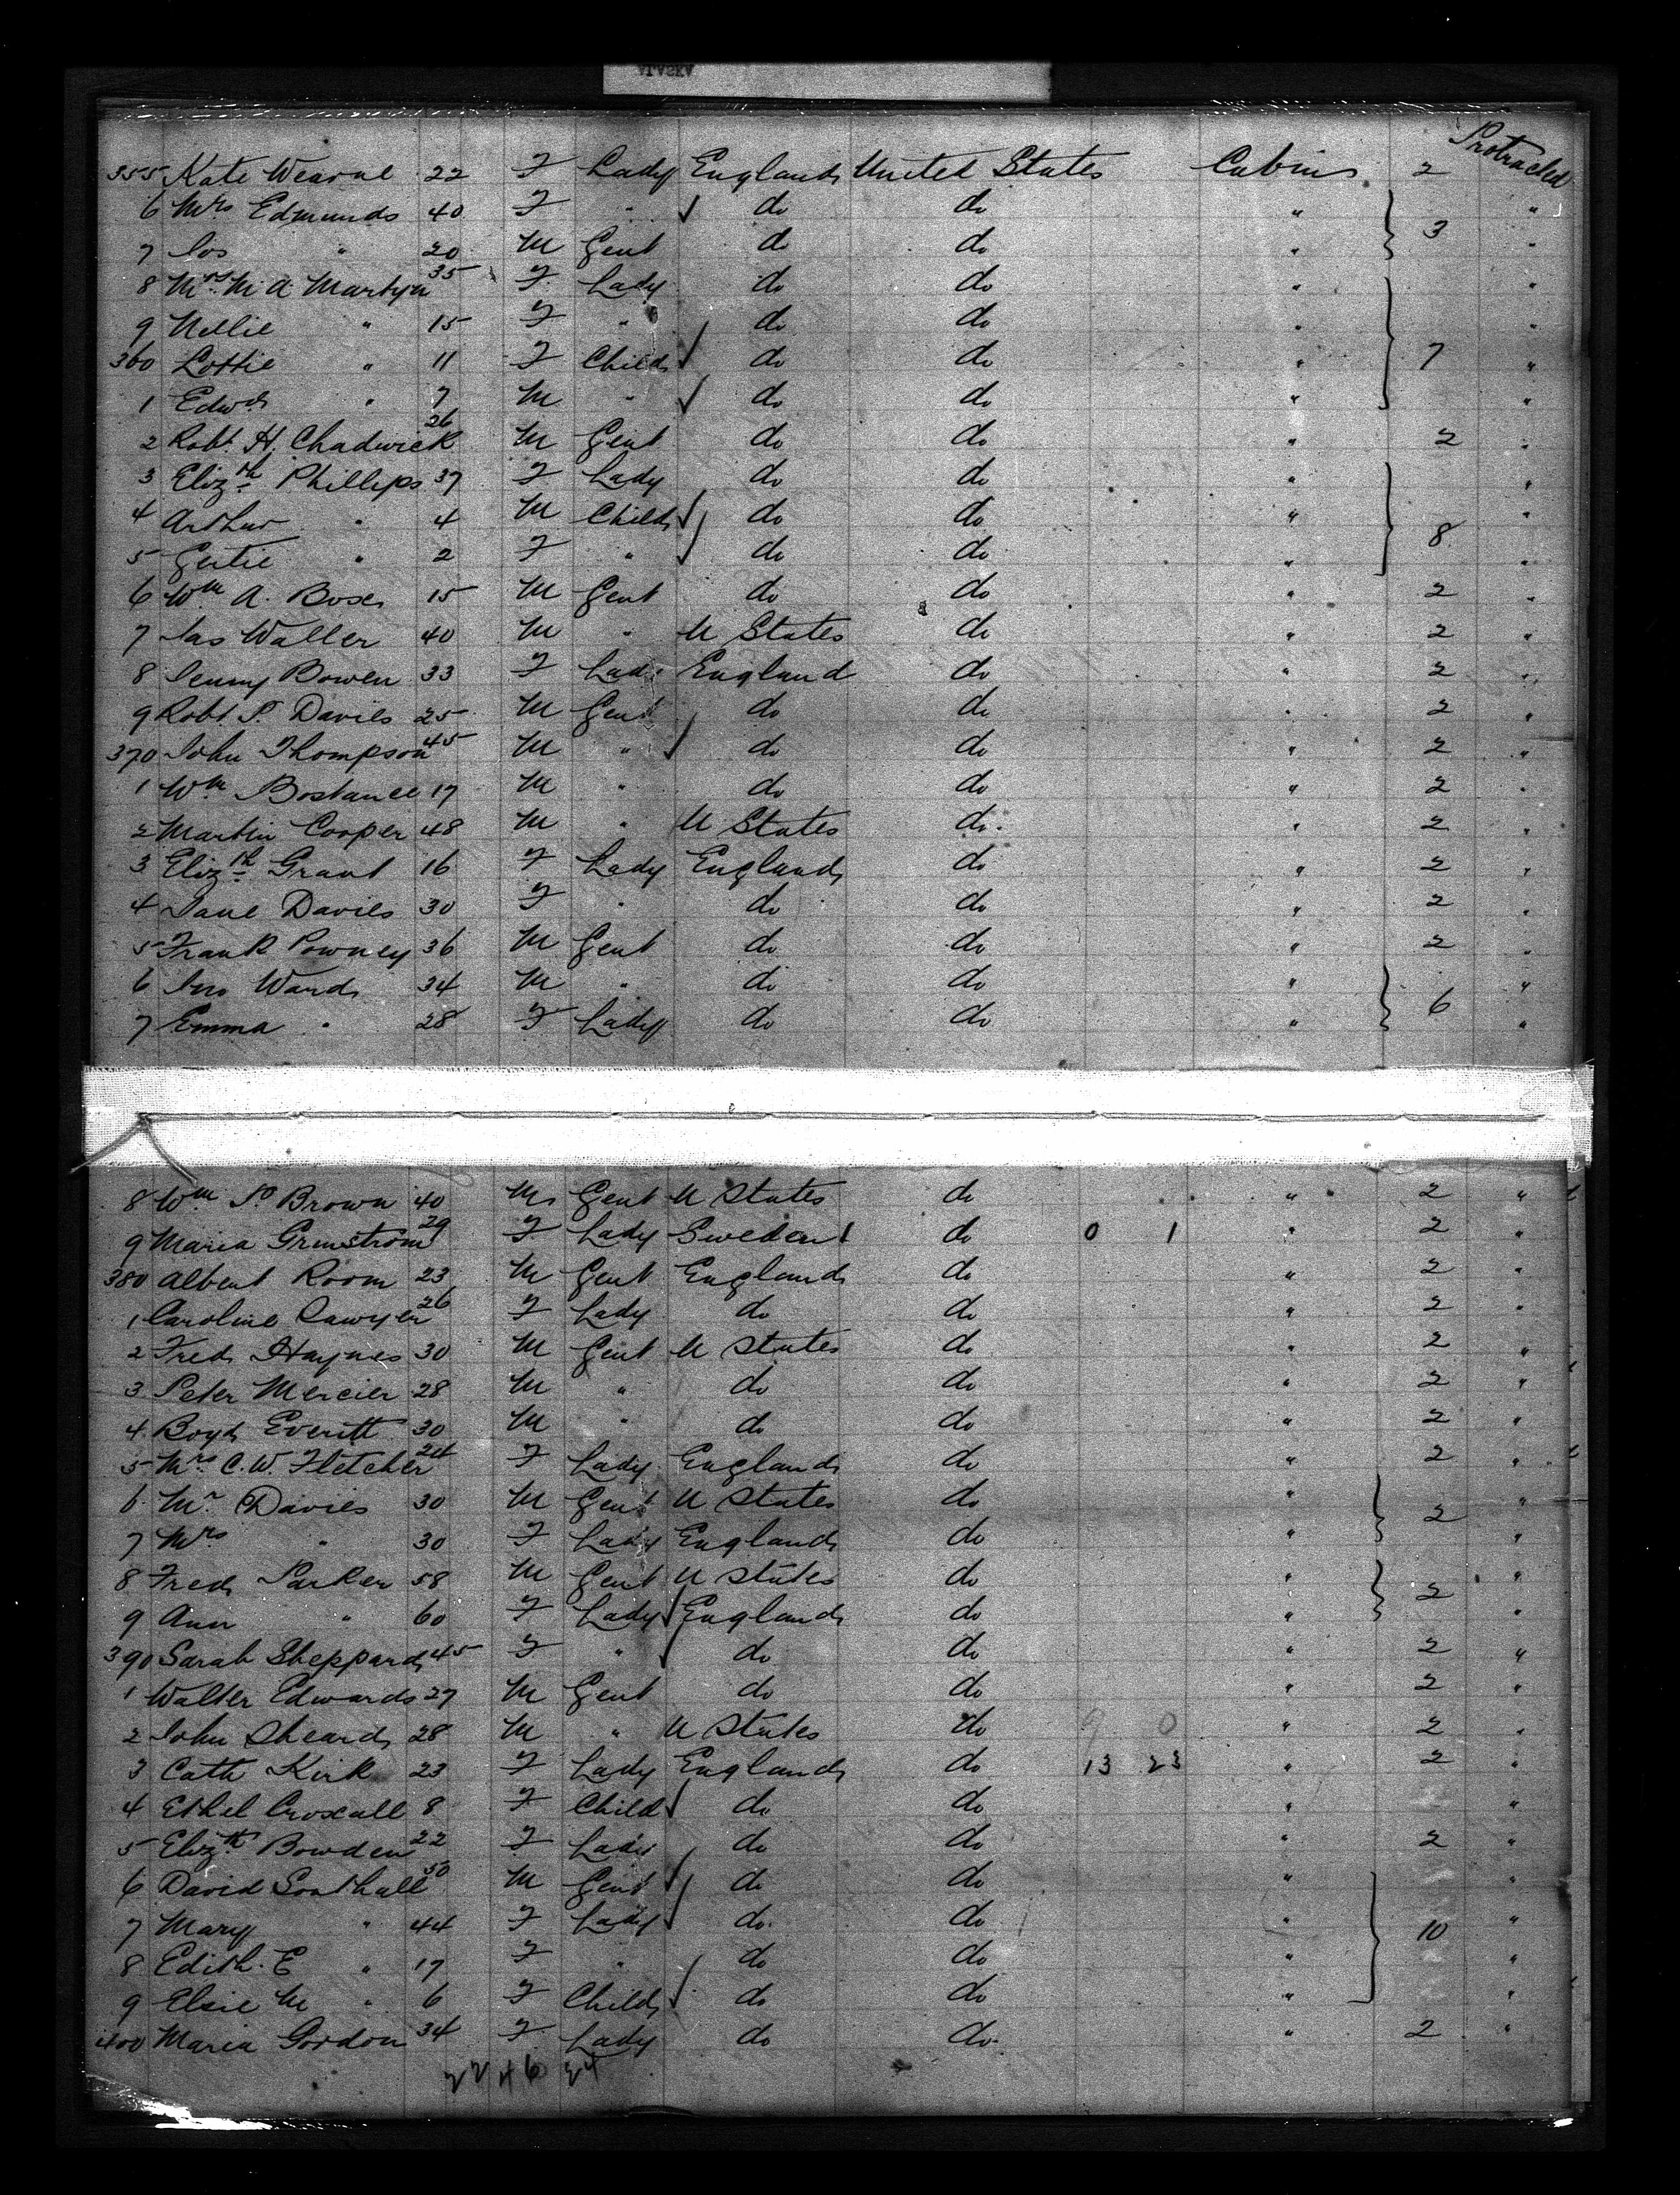 Protracted
355 Kate Wearne 22 F Lady England United States Cabin 2
6 Mrs Edmunds 40 F " do do " 3 "
7 Jos " 20 M Gent do do " "
8 Mrs M A Martyn 35 F Lady do do " "
9 Nellie " 15 F " do do " "
360 Lottie " 11 F Child do do " 7 "
1 Edwd " 7 M " do do " "
2 Robt H. Chadwick 26 M Gent do do " 2 "
3 Elizth Phillips 37 F Lady do do " "
4 Arthur " 4 M Child do do " 8 "
5 Gertie " 2 F " do do " "
6 Wm A. 15 M Gent do do " 2 "
7 Jas Waller 40 M " U States do " 2 "
8 Jenny Bowen 33 F Lady England do " 2 "
9 Robt S. Davies 25 M Gent do do " 2 "
370 John Thompson 45 M " do do " 2 "
1 Wm Bostance 17 M " do do " 2 "
2 Martin Cooper 48 M " U States do " 2 "
3 Elizth Grant 16 F Lady England do " 2 "
4 Jane Davies 30 F " do do " 2 "
5 Frank Powney 36 M Gent do do " 2 "
6 Jno Ward 34 M " do do " 6 "
7 Emma " 28 F Lady do do " "
8 Wm Jo Brown 40 M Gent U States do " 2 "
9 Maria 29 F Lady Sweden 1 do 0 1 " 2 "
380 Albert Room 23 M Gent England do " 2 "
1 Caroline Sawyer 26 F Lady do do " 2 "
2 Fred Haynes 30 M Gent U States do " 2 "
3 Peter Mercier 28 M " do do " 2 "
4 Boyd Everitt 30 M " do do " 2 "
5 Mrs C. W. Fletcher 24 F Lady England do " 2 "
6 Mr Davies 30 M Gent U States do " 2 "
7 Mrs " 30 F Lady England do " "
8 Fred Parker 58 M Gent U States do " 2 "
9 Ann " 60 F Lady England do " "
390 Sarah Sheppard 45 F " do do " 2 "
1 Walter Edwards 27 M Gent do do " 2 "
2 John Sheard 28 M " U States do 9 0 " 2 "
3 Cath Kirk 23 F Lady England do 13 23 " 2 "
4 Ethel Croxall 8 F Child do do " "
5 Elizth Bowden 22 F Lady do do " 2 "
6 David Southall 50 M Gent do do " "
7 Mary " 44 F Lady do do " 10 "
8 Edith. E " 17 F " do do " "
9 Elsie M " 6 F Child do do " "
400 Maria Gordon 34 F Lady do do " 2 "